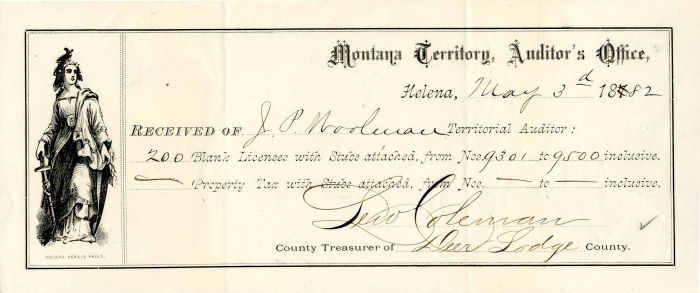 Montana Territory, Auditor's Office,
Helena, May 3d 1882
RECEIVED OF J. P. Woolman Territorial Auditor:
200 Blank Licenses with Stubs attached, from Nos. 9301 to 9500 inclusive.
— Property Tax with Stubs attached, from Nos. — to — inclusive.
Geo Coleman
County Treasurer of Deer Lodge County.
HELENA HERALD PRINT.